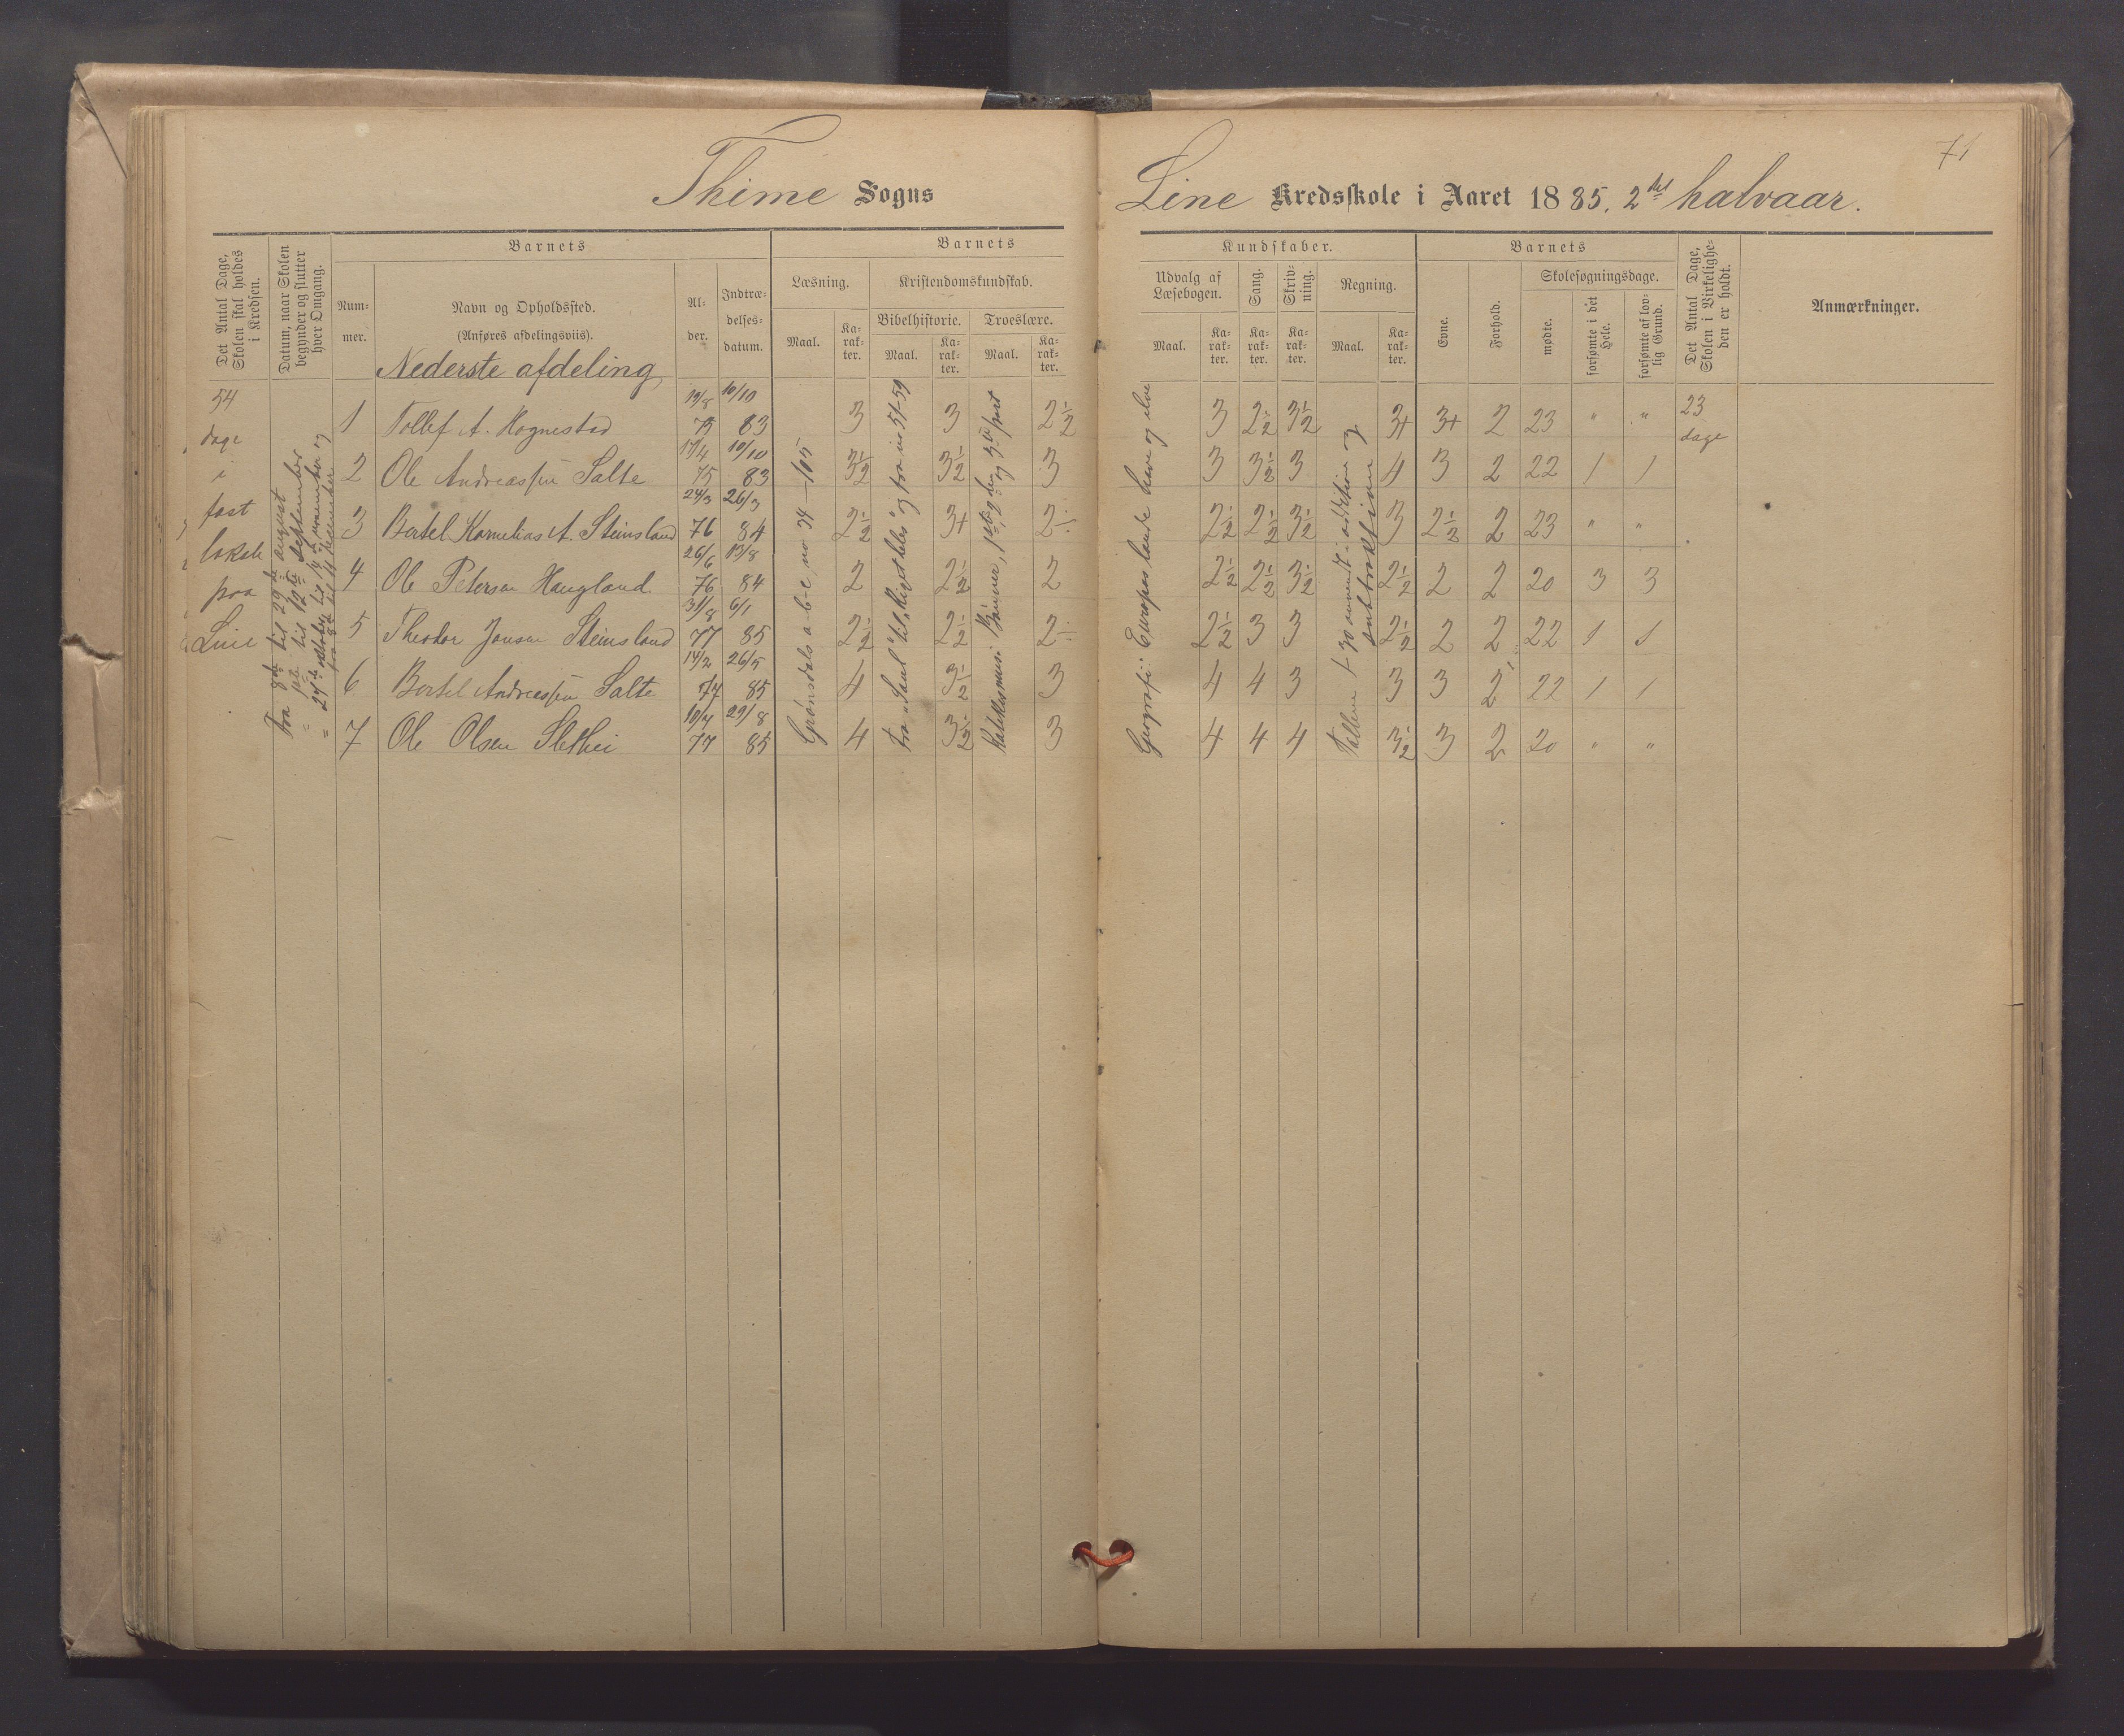 71
Thime Sogns
Line Kredsskole i Aaret 1885, 2det halvaar.
Det Antal Dage, Skolen skal holdes i Kredsen.
Datum, naar Skolen begynder og slutter hver Omgang.
Barnets
Nummer.
Navn og Opholdssted.
(Anføres afdelingsviis).
Alder.
Indtrædelsesdatum.
Barnets
Læsning.
Maal.
Karakter.
Kristendomskundskab.
Bibelhistorie.
Maal.
Karakter.
Troeslære.
Maal.
Karakter.
Kundskaber.
Udvalg af Læsebogen.
Maal.
Karakter.
Sang.
Karakter.
Skrivning.
Karakter.
Regning.
Maal.
Karakter.
Barnets
Evne.
Forhold.
Skolesøgningsdage.
mødte.
forsømte i det Hele.
forsømte af lovlig Grund.
Det Antal Dage, Skolen i Virkeligheden er holdt.
Anmærkninger.
Nederste afdeling
54 dage i fast lokale paa Line
Fra til 29de august
til 12te september
Grønsdals a-b-c, no 34–105
fra "Saul" til og fra no 51-59
Geografi: Europas lande have og elve
23 dage
1 Tollef A. Hognestad 19/8 75 10/10 83 3 3 2½ 3 2½ 3½ 3+ 3+ 2 23 " "
2 Ole Andreassen Salte 17/4 75 10/10 83 3½ 3½ 3 3 3½ 3 4 3 2 22 1 1
3 Bertel Kornelius A. Steinsland 24/3 76 26/3 84 2½ 3+ 2÷ 2½ 2½ 3½ 3 2½ 2 23 " "
4 Ole Peterson Haugland 26/6 76 13/8 84 2 2½ 2 2½ 2½ 3½ 2½ 2 2 20 3 3
5 Theodor Jonsen Steinsland 31/8 77 6/1 85 2½ 2½ 2÷ 2½ 3 3 2½ 2 2 22 1 1
6 Bertel Andreassen Salte 14/2 77 26/5 85 4 3½ 3 4 4 3 3 3 2 22 1 1
7 Ole Olsen Slethei 10/7 77 29/8 85 4 3½ 3 4 4 4 3½ 3 2 20 " "